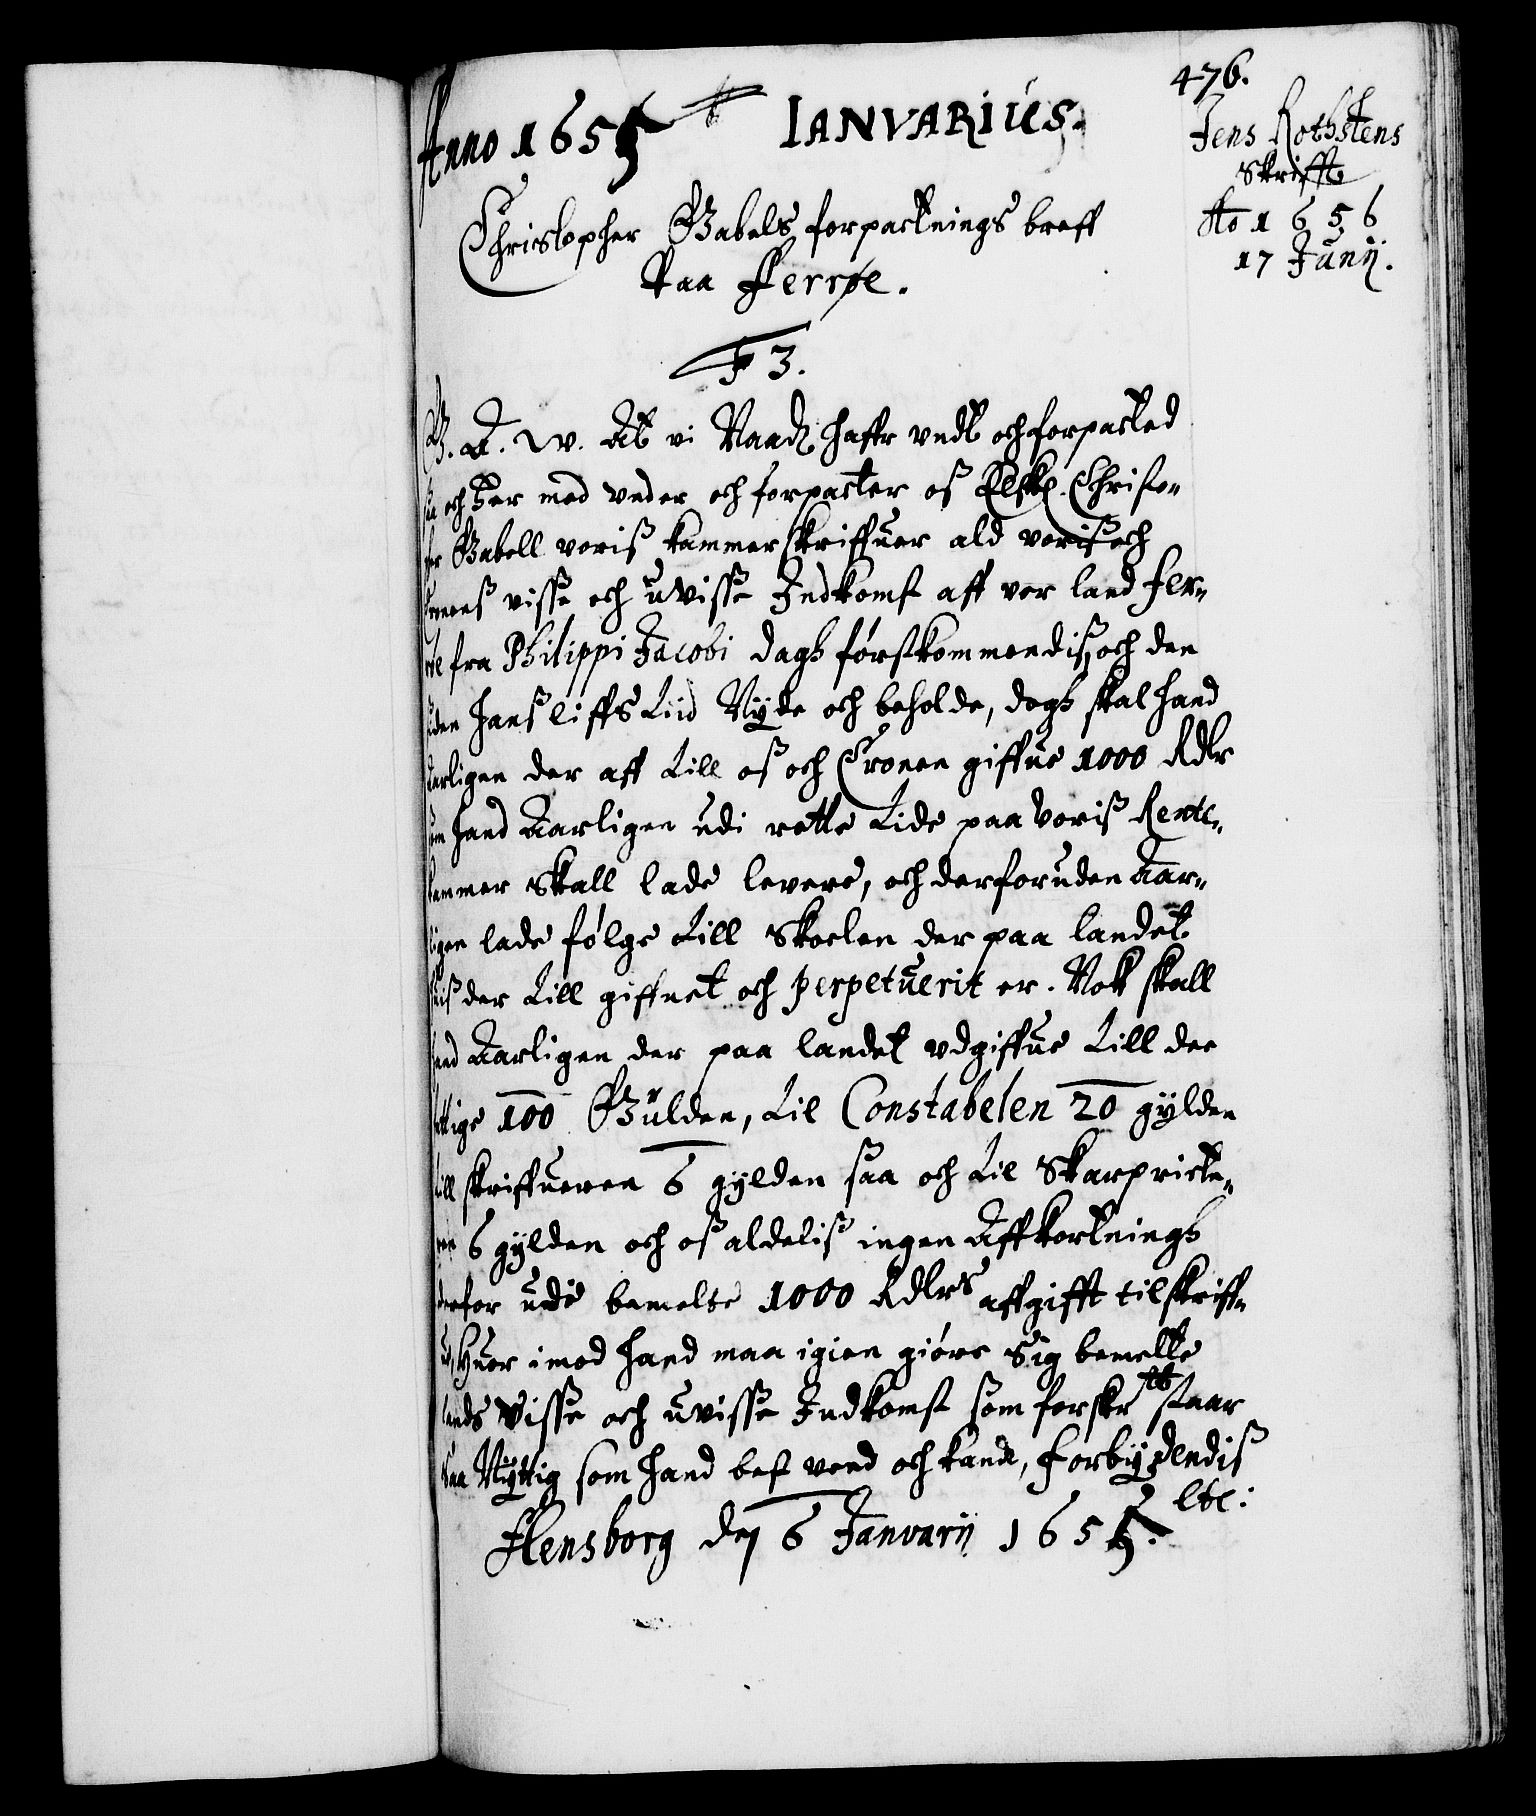 476.
Anno 1655 IANVARIUS.
Jens Rothstens
Skrifft
Ao 1656
17 Junij.
Christopher Gabels forpactnings breff
Paa Ferrøe.
F 3.
G. A. W. At vi Naadh haffr undt och forpacted
saa och her med under och forpacter os Elskl. Christo-
her Gabell voris kammer skriffuer ald voris och
Cronens visse och uvisse Indkomst aff vor land Fer-
røe fra Philippi Jacobi dagh førstkommendis, och den
uden hans liffs tiid Nyde och beholde, dogh skal hand
Aarligen der aff till os och Cronen giffue 1000 Rdlr
som hand Aarligen udi rette tide paa voris Rente-
kammer skall lade levere, och der foruden Aar-
ligen lade følge till Skoelen der paa landet
huis der till giffuet och perpetuerit er. Nok skall
hand Aarligen der paa landet udgiffue till dee
fattige 100 Gylden, til Constabelen 20 gylden
till skriffueren 6 gylden saa och til Skarpricte-
ren 6 gylden och os aldelis ingen Affkortningh
derfor udi bemelte 1000 Rdlrs affgifft tilskriff-
ue, Huor imod hand maa igien giøre sig bemelte
lands visse och uvisse Indkomst som forskr tt staar
saa Nyttig som hand best veed och kand, forbydendis
etc:
Flensborg den 6 Januarij 1655.